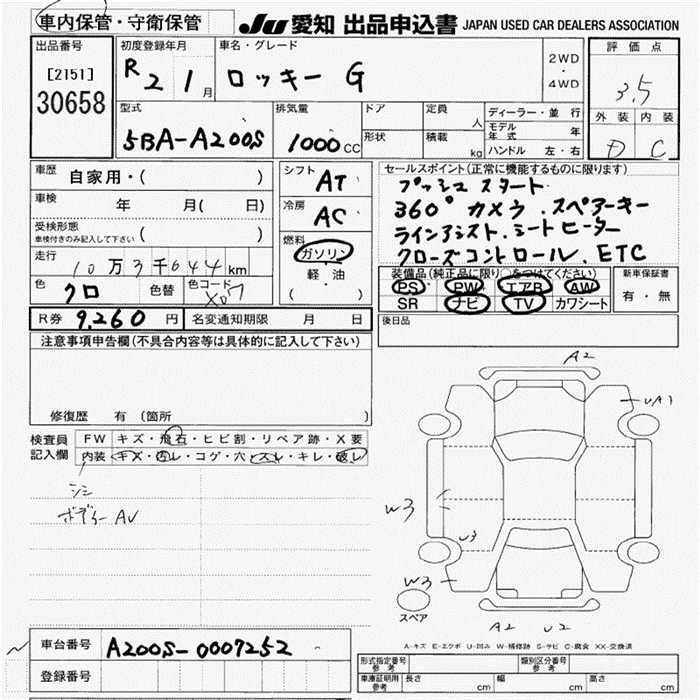 車内保管・守衛保管
JU 愛知 出品申込書 JAPAN USED CAR DEALERS ASSOCIATION
出品番号
[2151]
30658
初度登録年月
R2 1月
車名・グレード
ロッキー G
2WD
・
4WD
評価点
3.5
外装 内装
D C
型式
5BA-A200S
排気量
1000cc
ドア
形状
定員 人
積載 kg
ディーラー・並行
モデル年式 年
ハンドル 左・右
車歴 自家用・( )
車検 年 月( 日)
受検形態
車検付きのみ記入して下さい ( )
走行 10万3千644km
色 クロ 色替 色コード X07
シフト AT
冷房 AC
燃料
ガソリン
軽・油
( )
セールスポイント(正常に機能するものに限ります)
プッシュスタート
360°カメラ.スペアーキー
ラインアシスト.シートヒーター
クローズコントロール.ETC
装備品(純正品に限り○をつけてください)
PS PW エアB AW
SR ナビ TV カワシート
新車保証書
有・無
R券 9,260円 名変通知期限 月 日
後日品
注意事項申告欄(不具合内容等は具体的に記入して下さい)
修復歴 有 (箇所 )
検査員
記入欄
FW キズ・飛石・ヒビ割・リペア跡・X要
内装 キズ・汚レ・コゲ・穴・スレ・キレ・破レ
シミ
ボディーAU
A2
UA1
W3
U3
W3
スペア
A2 U2
A-キズ E-エクボ U-凹み W-補修跡 S-サビ C-腐食 XX-交換済
車台番号 A200S-0007252
登録番号
形式指定番号
参考
類別区分番号
参考
車庫証明用
参考
長さ cm 幅 cm 高さ cm